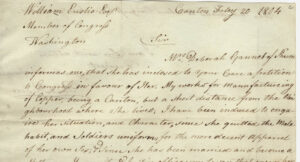 William Eustis Esqr Canton Feby 20 1804
Member of Congress
Washington Sir
Mrs Deborah Gannet of Sharon
informes me, that she has inclosed to your Care a petition
to Congress in favour of Her. My works for Manufacturing
of Copper, being at Canton, but a short distance from the Nei
ghbourhood where She lives; I have been induced to enqu
ire her situation, and Character, since she quitted the Male
habit, and Soldiers uniform; for the more decent apparrel
of her own Sex; & Since she has been married and become a